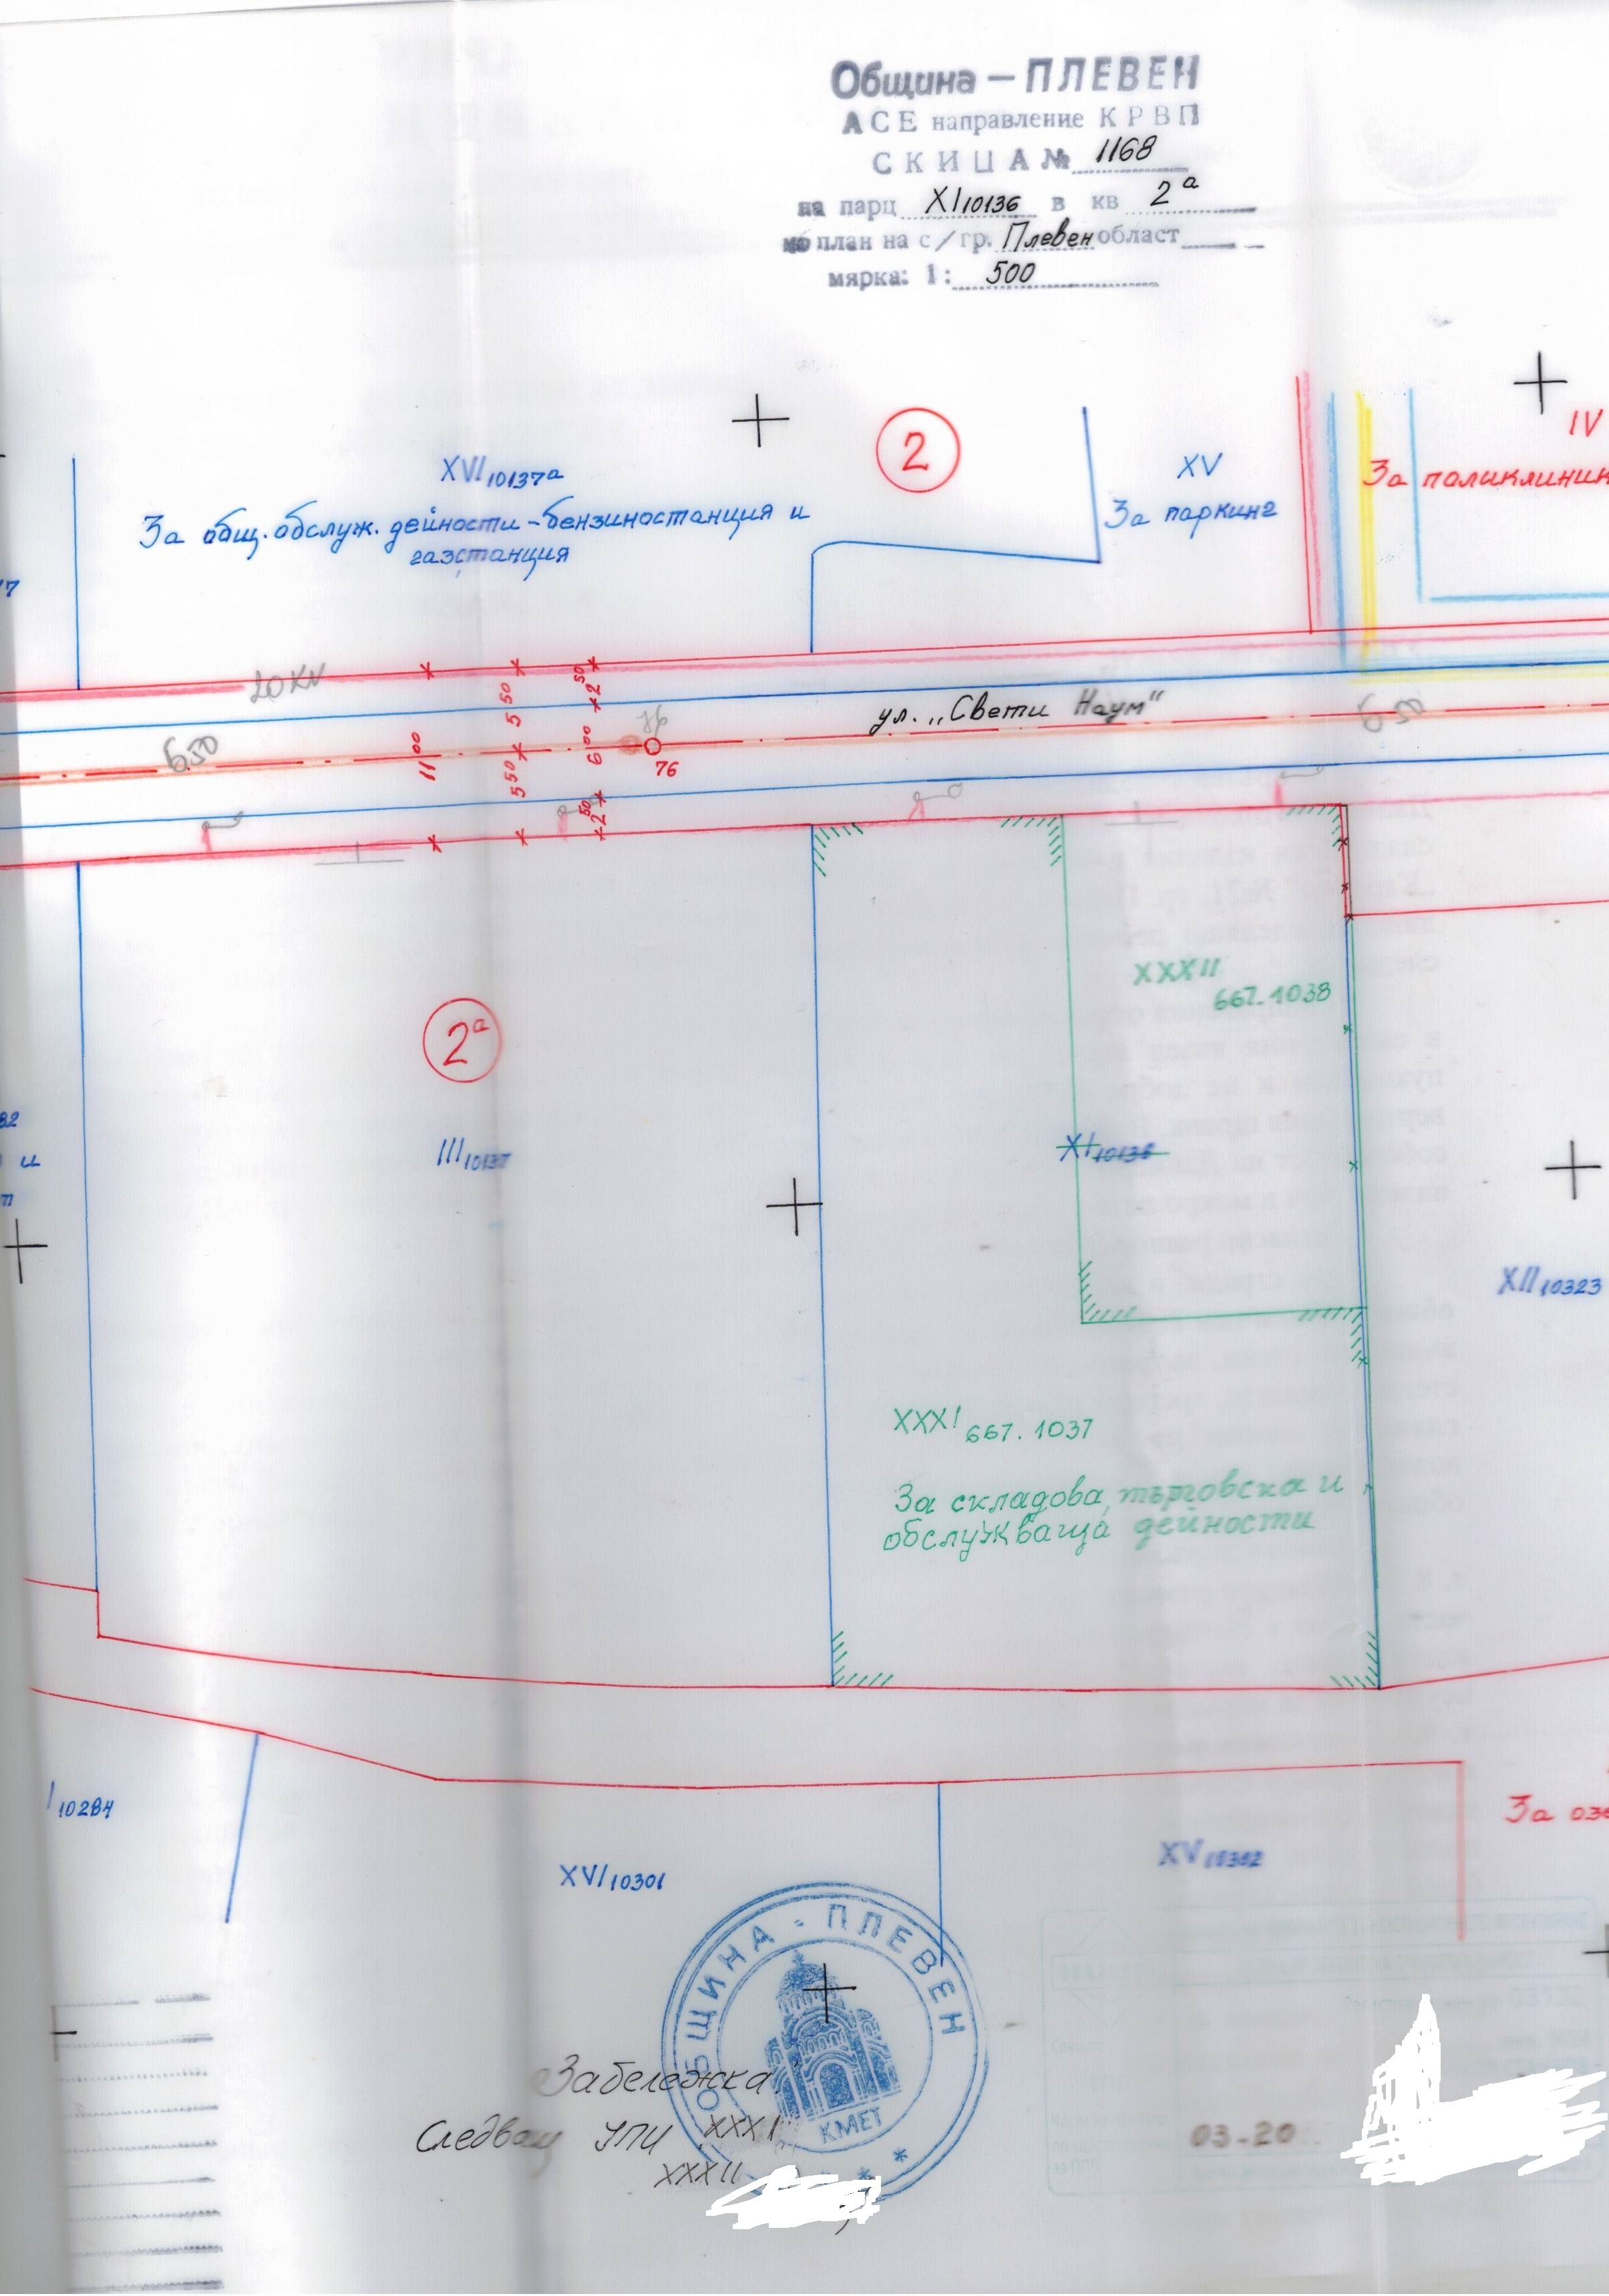 Община – ПЛЕВЕН
АСЕ направление КРВП
СКИЦА № 1168
на парц XI 10136 в кв 2а
по план на с/гр. Плевен област
мярка: 1: 500
XVI 10137а
За общ. обслуж. дейности - бензиностанция и
газстанция
2
XV
За паркинг
IV
За поликлиник
7
20 KV
650
11 00
5 50
5 50
2 50
6 00
2 50
76
76
ул. „Свети Наум"
6 50
2а
III 10137
XXXII
667.1038
XI 10136
82
и
XII 10323
XXXI 667.1037
За складова, търговска и
обслужваща дейности
I 10284
XVI 10301
XV 10302
За озе
ОБЩИНА - ПЛЕВЕН
КМЕТ
Забележка:
Следващ УПИ XXXI
XXXII
03-20